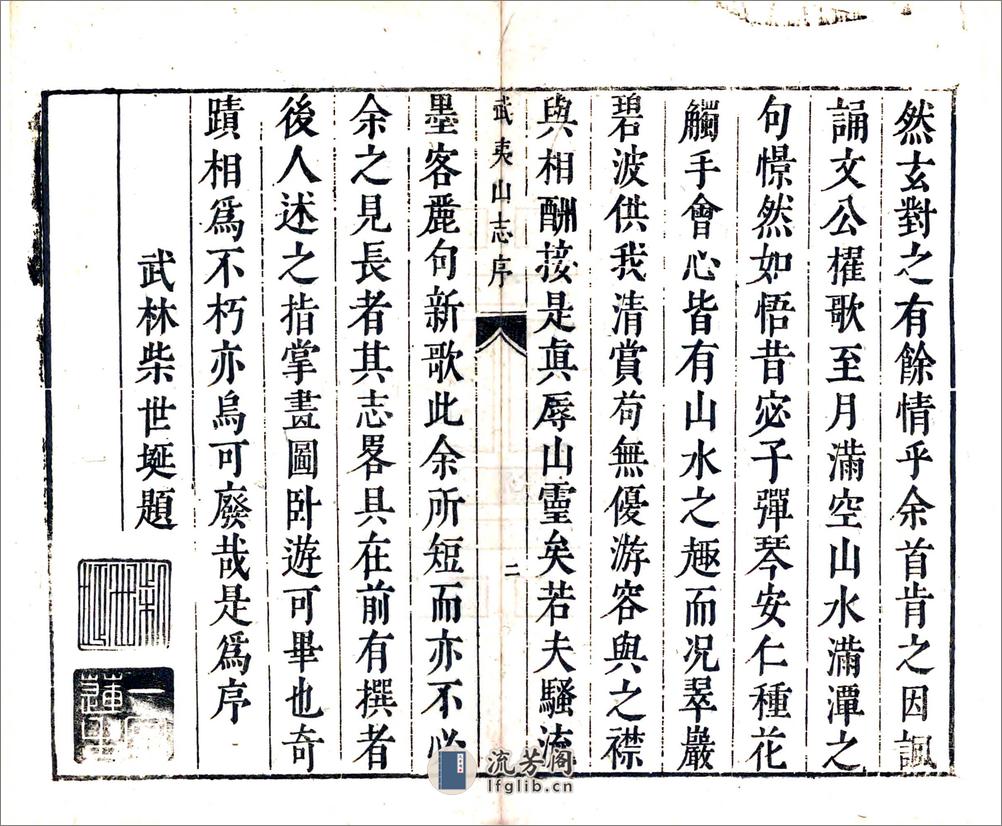 然玄對之有餘情乎余首肯之因諷
誦文公櫂歌至月滿空山水滿潭之
句憬然如悟昔宓子彈琴安仁種花
觸手會心皆有山水之趣而况翠巖
碧波供我清賞苟無優游容與之襟
與相酬接是真辱山靈矣若夫騷流
武夷山志序
二
墨客麗句新歌此余所短而亦不必
余之見長者其志畧具在前有撰者
後人述之指掌畫圖卧遊可畢也奇
蹟相爲不朽亦烏可廢哉是爲序
武林柴世埏題
流芳阁
lfglib.cn